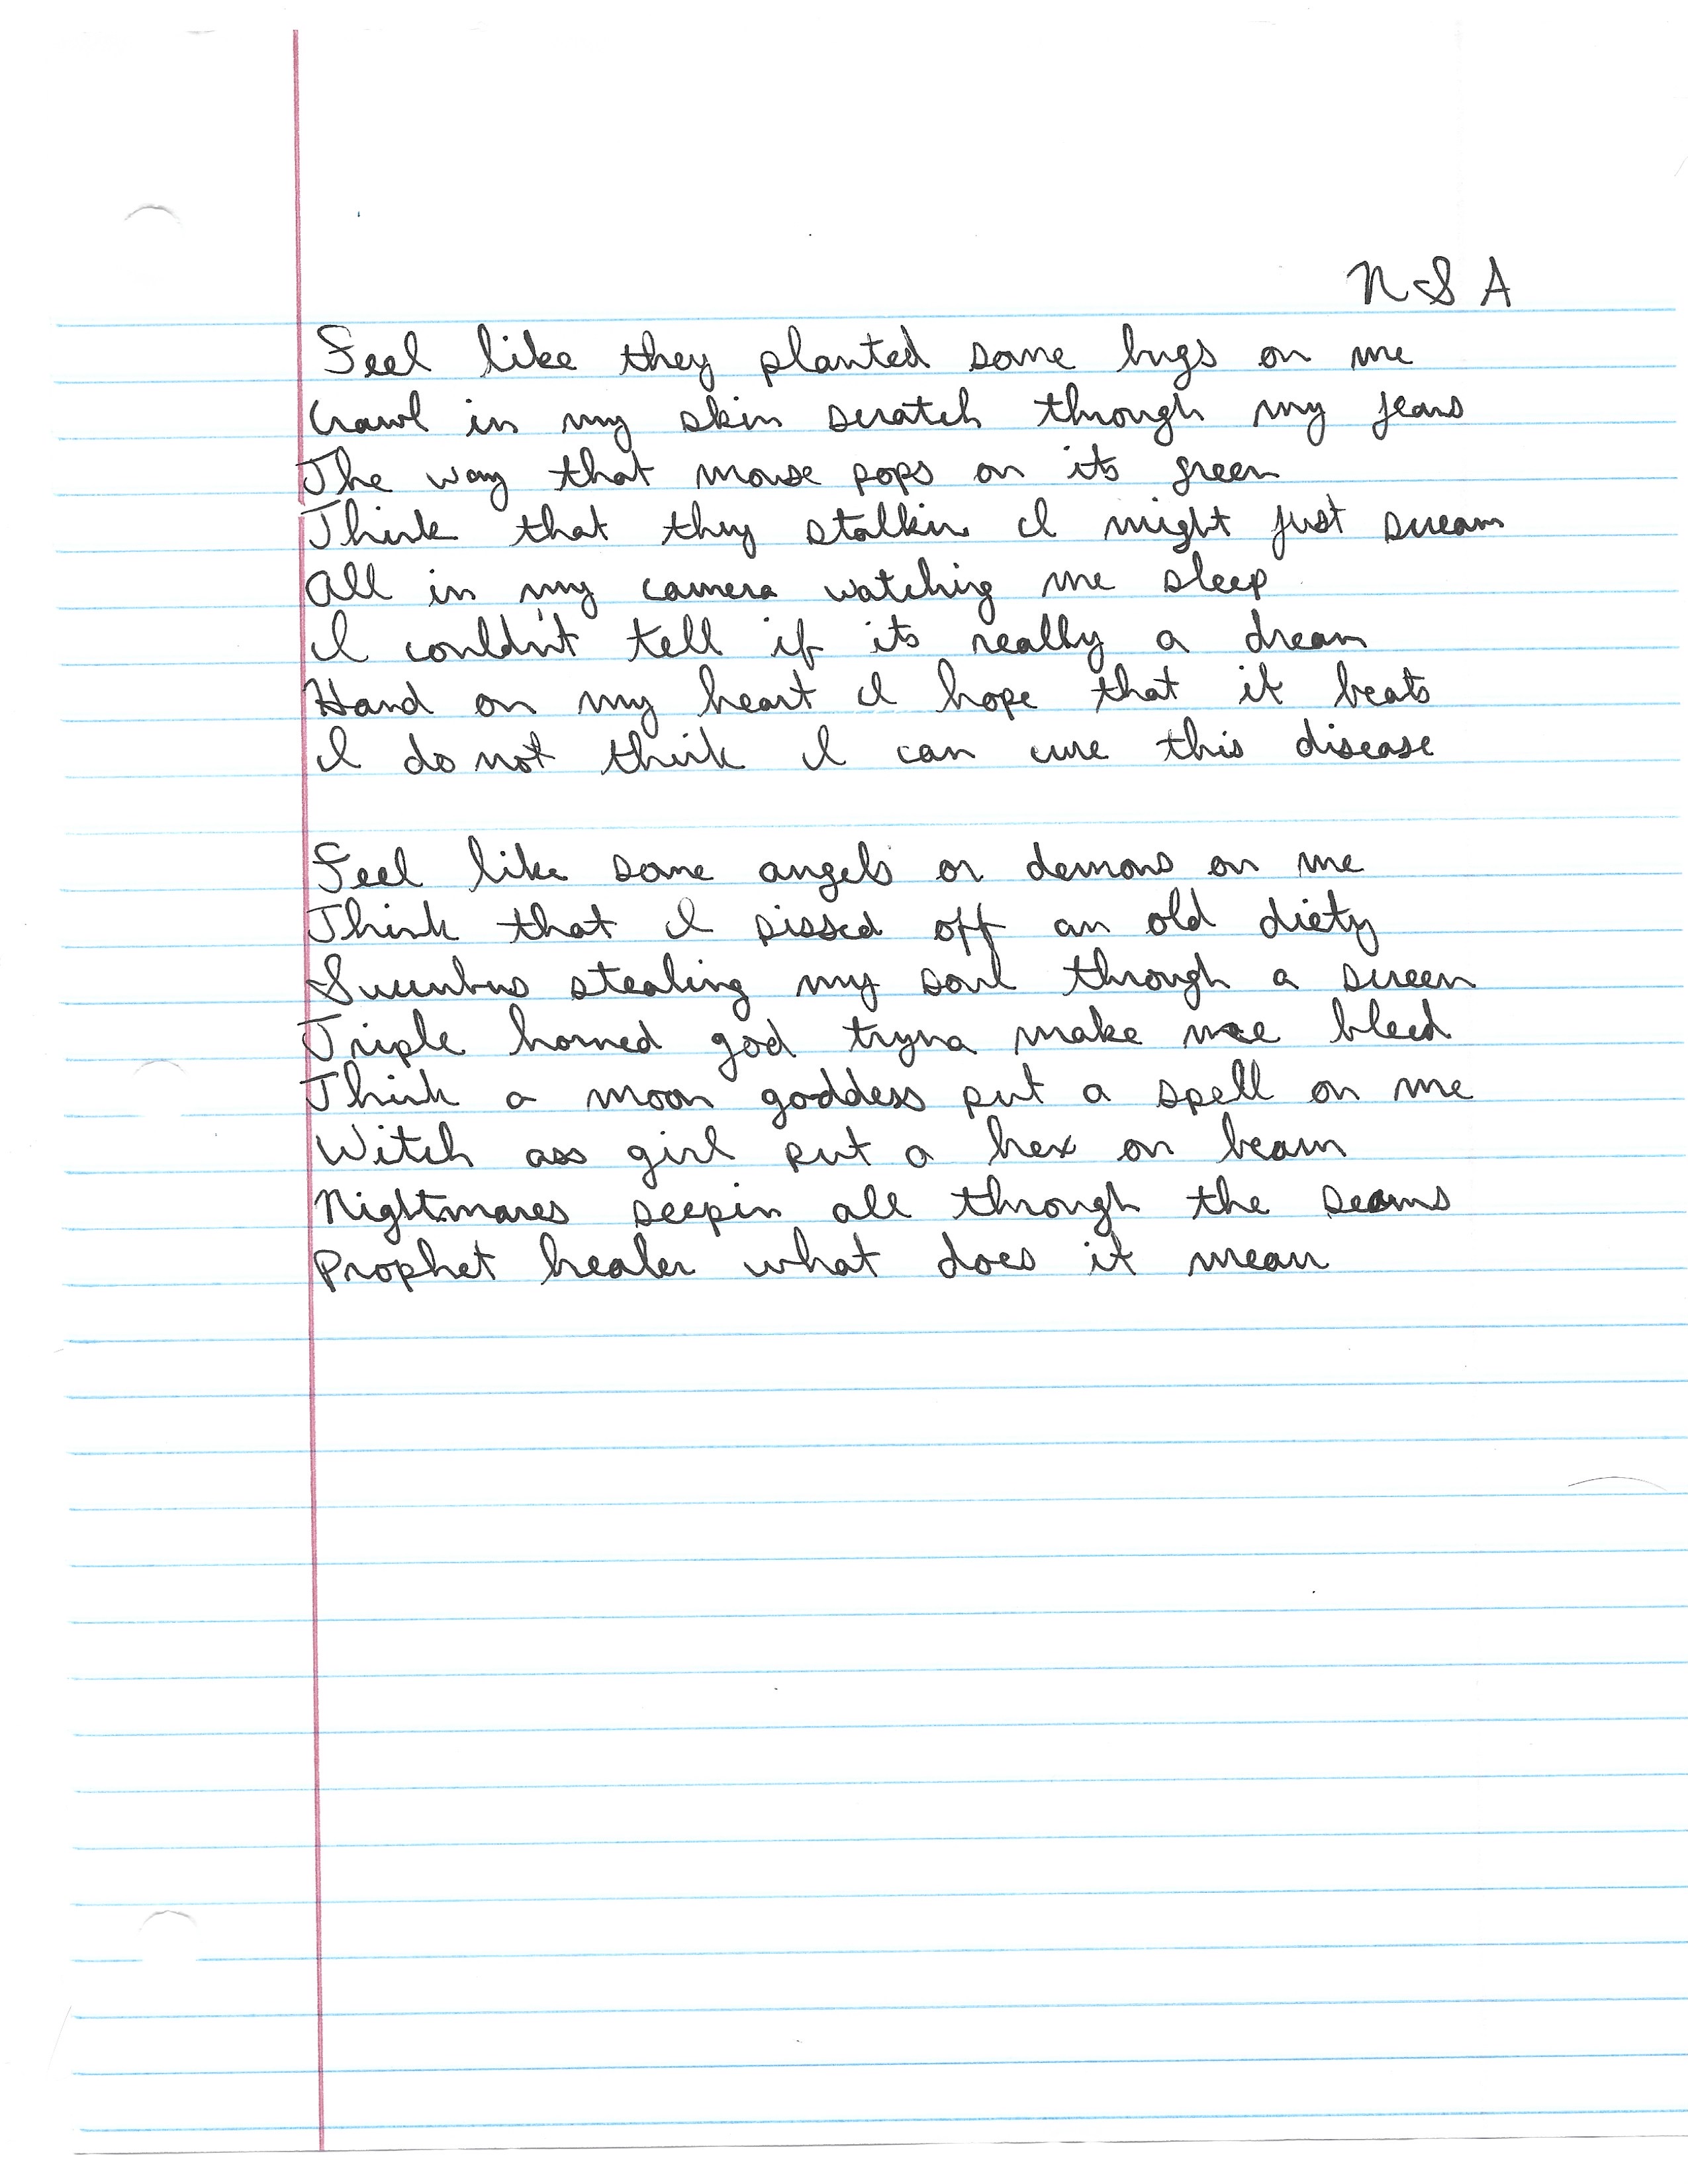 NSA
Feel like they planted some bugs on me
Crawl in my skin scratch through my jeans
The way that mouse pops on its green
Think that they stalkin I might just scream
All in my camera watching me sleep
I couldn't tell if its really a dream
Hand on my heart I hope that it beats
I do not think I can cure this disease
Feel like some angels or demons on me
Think that I pissed off an old diety
Succubus stealing my soul through a screen
Triple horned god tryna make me bleed
Think a moon goddess put a spell on me
Witch ass girl put a hex on beam
Nightmares seepin all through the seams
Prophet healer what does it mean